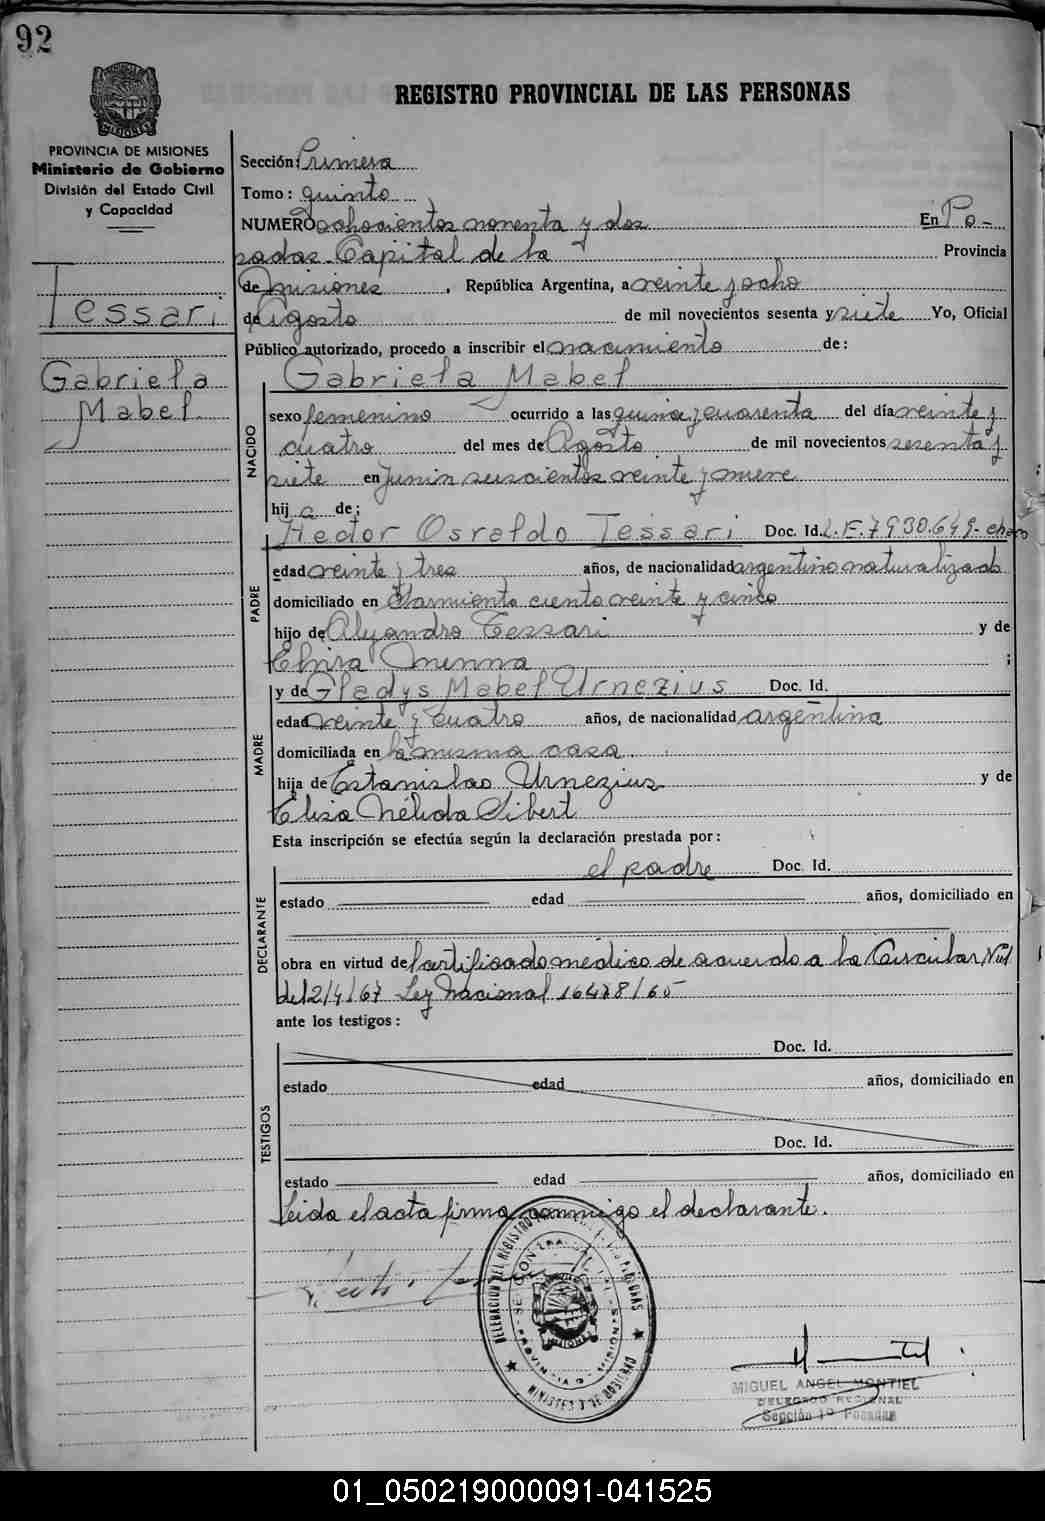 92
REGISTRO PROVINCIAL DE LAS PERSONAS
PROVINCIA DE MISIONES
Ministerio de Gobierno
División del Estado Civil
y Capacidad
Tessari
Gabriela
Mabel
Sección: Primera
Tomo: quinto
NUMERO ochocientos noventa y dos En Po-
sadas Capital de la Provincia
de Misiones, República Argentina, a veinte y ocho
de Agosto de mil novecientos sesenta y siete Yo, Oficial
Público autorizado, procedo a inscribir el nacimiento de:
Gabriela Mabel
NACIDO
sexo femenino ocurrido a las quince y cuarenta del día veinte y
cuatro del mes de Agosto de mil novecientos sesenta y
siete en Junin seiscientos veinte y nueve
hija de:
PADRE
Hector Osvaldo Tessari Doc. Id. L.E. 7930.649.
edad veinte y tres años, de nacionalidad argentino naturalizado
domiciliado en Sarmiento ciento veinte y cinco
hijo de Alejandro Tessari y de
Elvira Menna ;
MADRE
y de Gladys Mabel Urnezius Doc. Id.
edad veinte y cuatro años, de nacionalidad argentina
domiciliada en la misma casa
hija de Estanislao Urnezius y de
Elisa Nélida Sibert
Esta inscripción se efectúa según la declaración prestada por:
DECLARANTE
el padre Doc. Id.
estado edad años, domiciliado en
obra en virtud de Certificado médico de acuerdo a la Circular
del 2/4/67 Ley Nacional 16478/65
ante los testigos:
TESTIGOS
Doc. Id.
estado edad años, domiciliado en
Doc. Id.
estado edad años, domiciliado en
Leida el acta firma conmigo el declarante.
MIGUEL ANGEL MONTIEL
DELEGADO REGIONAL
Sección 1º Posadas
01_050219000091-041525